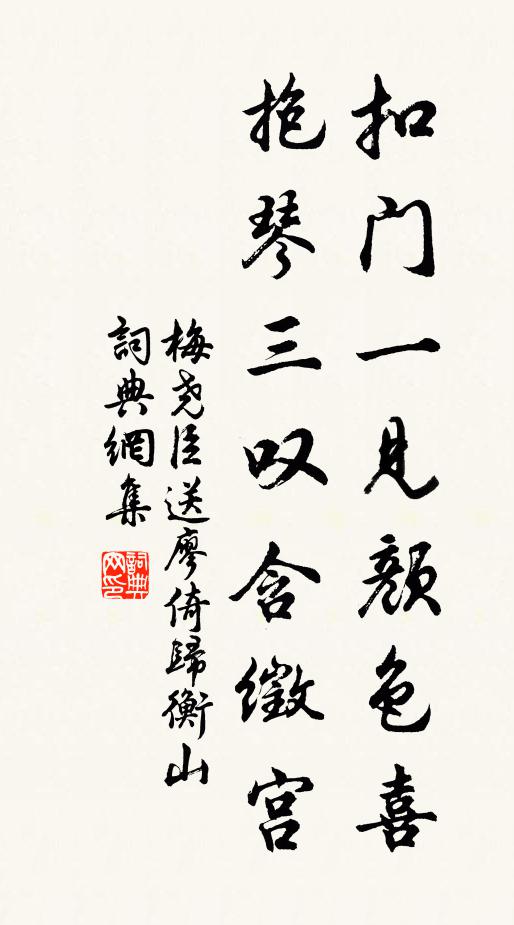 扣门一见颜色喜
抱琴三叹含徵宫
梅尧臣送廖倚歸衡山
詞典網集
詞典网印